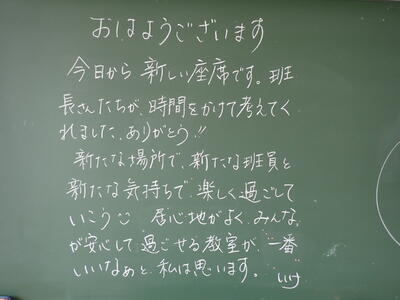 おはようございます
今日から新しい座席です。班
長さんたちが、時間をかけて考えてく
れました。ありがとう!!
新たな場所で、新たな班員と
新たな気持ちで、楽しく過ごして
いこう☺ 居心地がよく、みんな
が安心して過ごせる教室が、一番
いいなぁと、私は思います。